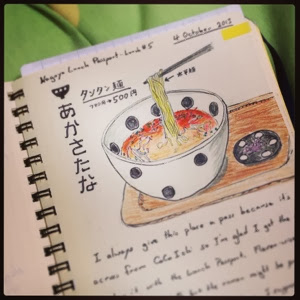 Nagoya Lunch Passport - Lunch #5
4 October 2013
タンタン麺
700円→500円
←水菜麺
あかさたな
I always give this place a pass because its
across from CoCo Ichi so I'm glad I got the
it with the Lunch Passport.
but the name might be